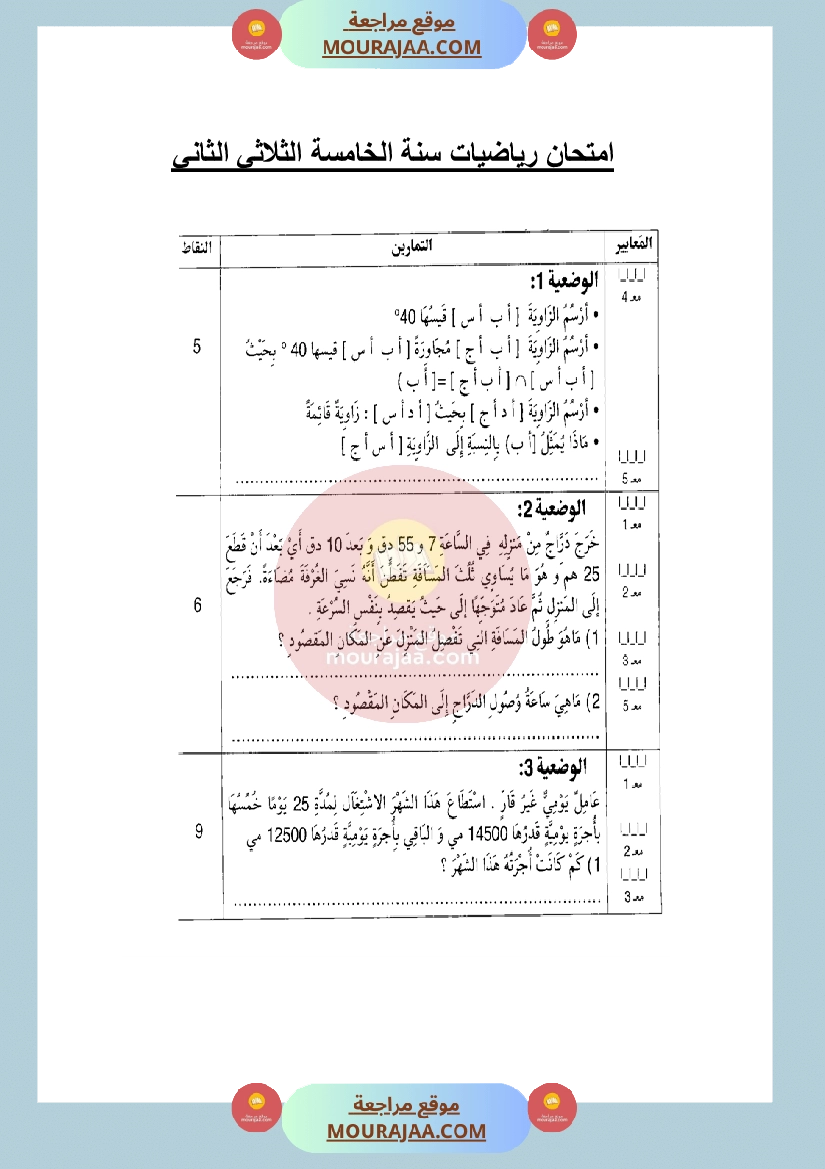 موقع مراجعة
MOURAJAA.COM
امتحان رياضيات سنة الخامسة الثلاثي الثاني
المَعايير التمارين النقاط
الوضعية 1:
مـعـ 4
• أرْسُمُ الزَاوِيَةَ [ أ ب أ س ] قَيسُهَا 40°
• أرْسُمُ الزَاوِيَةَ [ أ ب أ ج ] مُجَاورَةً [ أ ب أ س ] قيسها 40 ° بِحَيْثُ
5
[ أ ب أ س ] ∩ [ أ ب أ ج ] =[ أ ب )
• أرْسُمُ الزَاوِيَةَ [ أ د أ ج ] بِحَيثُ [ أ د أ س ] : زَاوِيَةٌ قَائِمَةٌ
• مَاذَا يُمَثِّلُ [أ ب) بِالنِسبَةِ إلَى الزَّاوِيَةِ [ أ س أ ج ]
مـعـ 5
الوضعية 2:
مـعـ 1
خَرَجَ دَرَّاجٌ مِنْ مَنزِلِهِ في السَّاعَةِ 7 و 55 دق وَ بَعدَ 10 دق أيْ بَعْدَ أَنْ قَطَعَ
25 هم وَ هُوَ مَا يُسَاوِي ثُلُثَ المَسَافَةِ تَفَطَّنَ أنَّهُ نَسِيَ الغُرْفَةَ مُضَاءَةً. فَرَجَعَ
مـعـ 2
إلَى المَنزِلِ ثُمَّ عَادَ مُتَوَجِّهًا إلَى حيثُ يَقصِدُ بِنَفْسِ السُرْعَةِ .
6
1) مَاهُوَ طُولُ المَسَافَةِ التِي تَفْصِلُ المَنْزِلَ عَنِ المَكَانِ المَقصُودِ ؟
مـعـ 3
موقع مراجعة
mourajaa.com
2) مَاهِيَ سَاعَةُ وُصُولِ الدَرَّاجِ إلَى المَكَانِ المَقْصُودِ ؟
مـعـ 5
الوضعية 3:
مـعـ 1
عَامِلٌ يَوْمِيٌّ غَيرُ قَارٍّ . اسْتَطَاعَ هَذَا الشَهْرَ الاشْتِغَال لِمُدَّةِ 25 يَوْمًا خُمُسُهَا
بأُجرَةٍ يوْمِيَّةٍ قَدرُهَا 14500 مي وَ البَاقِي بِأُجرَةٍ يَومِيَّةٍ قَدرُهَا 12500 مي
9
مـعـ 2
1) كَمْ كَانَتْ أُجْرَتُهُ هَذَا الشَهْرَ ؟
مـعـ 3
موقع مراجعة
MOURAJAA.COM